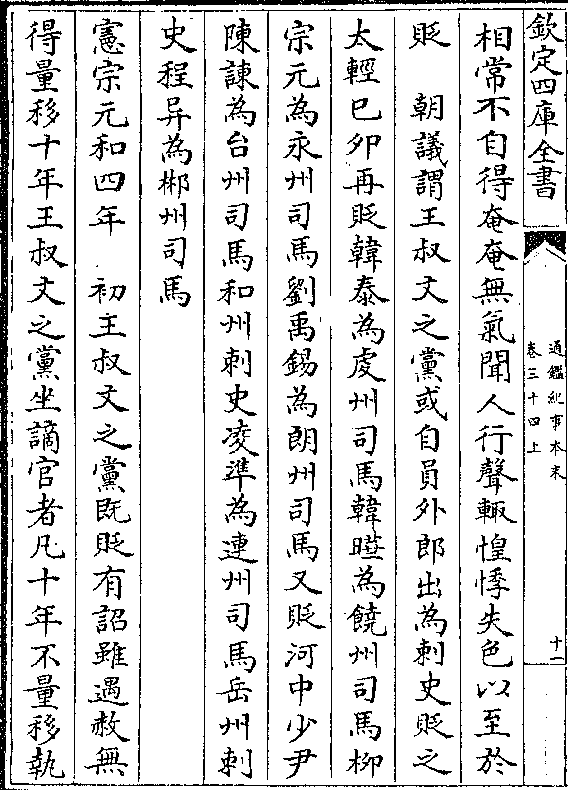 欽定四庫全書
通鑑紀事本末
卷三十四上
十一
相常不自得奄奄無氣聞人行聲輒惶悸失色以至於
貶　朝議謂王叔文之黨或自員外郎出為刺史貶之
太輕巳夘再貶韓泰為䖍州司馬韓曄為饒州司馬柳
宗元為永州司馬劉禹錫為朗州司馬又貶河中少尹
陳諫為台州司馬和州刺史凌準為連州司馬岳州刺
史程异為郴州司馬
憲宗元和四年　初王叔文之黨既貶有詔雖遇赦無
得量移十年王叔文之黨坐謫官者凡十年不量移執